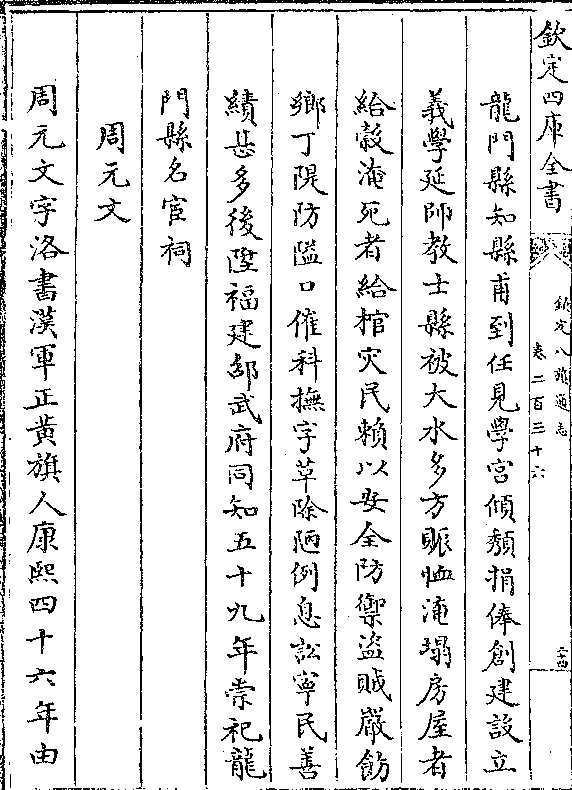 欽定四庫全書
欽定八旗通志
卷二百三十六
二十四
龍門縣知縣甫到任見學宮傾頽捐俸創建設立
義學延師教士縣被大水多方賑恤淹塌房屋者
給穀淹死者給棺灾民賴以安全防禦盜賊嚴飭
鄉丁隄防隘口催科撫字革除陋例息訟寧民善
績甚多後陞福建邵武府同知五十九年崇祀龍
門縣名宦祠
周元文
周元文字洛書漢軍正黃旗人康熙四十六年由